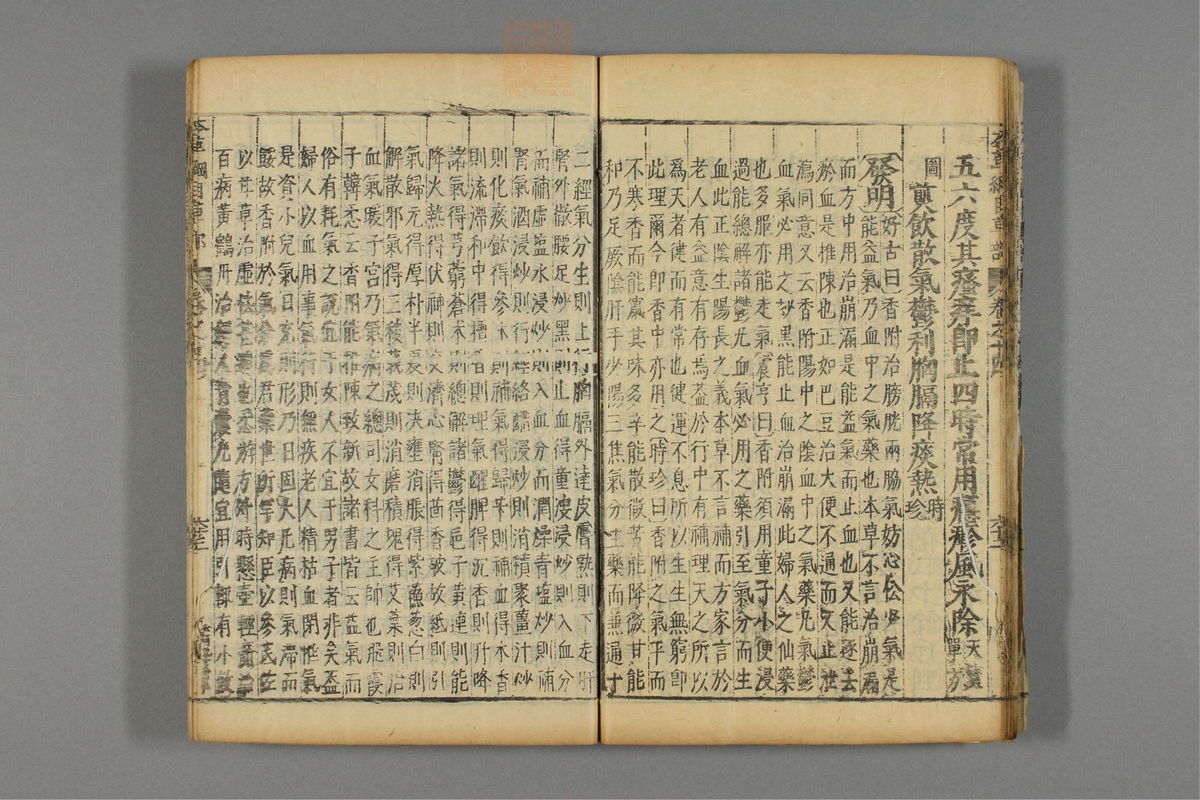 五六度其瘙痒即止四時常用癮疹風永除天寶單方
圖煎飲散氣鬱利胸膈降痰熱時珍
發明好古曰香附治膀胱兩脇氣妨心忪少氣是
能益氣乃血中之氣藥也本草不言治崩漏
而方中用治崩漏是能益氣而止血也又能逐去
瘀血是推陳也正如巴豆治大便不通而又止泄
瀉同意又云香附陽中之陰血中之氣藥凡氣鬱
血氣必用之炒黑能止血治崩漏此婦人之仙藥
也多服亦能走氣震亨曰香附須用童子小便浸
過能總解諸鬱凡血氣必用之藥引至氣分而生
血此正陰生陽長之義本草不言補而方家言於
老人有益意有存焉蓋於行中有補理天之所以
為天者健而有常也健運不息所以生生無窮即
此理爾今即香中亦用之時珍曰香附之氣平而
不寒香而能竄其味多辛能散微苦能降微甘能
和乃足厥陰肝手少陽三焦氣分主藥而兼通十
二經氣分生則上行胸膈外達皮膚熟則下走肝
腎外徹腰足炒黑則止血得童溲浸炒則入血分
而補虛鹽水浸炒則入血分而潤燥青鹽炒則補
腎氣酒浸炒則行經絡醋浸炒則消積聚薑汁炒
則化痰飲得參朮則補氣得歸芐則補血得木香
則流滯和中得檀香則理氣醒脾得沉香則升降
諸氣得芎藭蒼朮則總解諸鬱得巵子黃連則能
降火熱得伏神則交濟心腎得茴香破故紙則引
氣歸元得厚朴半夏則決壅消脹得紫蘇蔥白則
解散邪氣得三稜莪茂則消磨積塊得艾葉則治
血氣暖子宮乃氣病之總司女科之主帥也飛霞
子韓悉云香附能推陳致新故諸書皆云益氣而
俗有耗氣之說宜于女人不宜于男子者非矣蓋
婦人以血用事氣行則無疾老人精枯血閉惟氣
是資小兒氣日充則形乃日固大凡病則氣滯而
餒故香附於氣分為君藥世所罕知臣以參芪佐
以甘草治虛怯甚速也